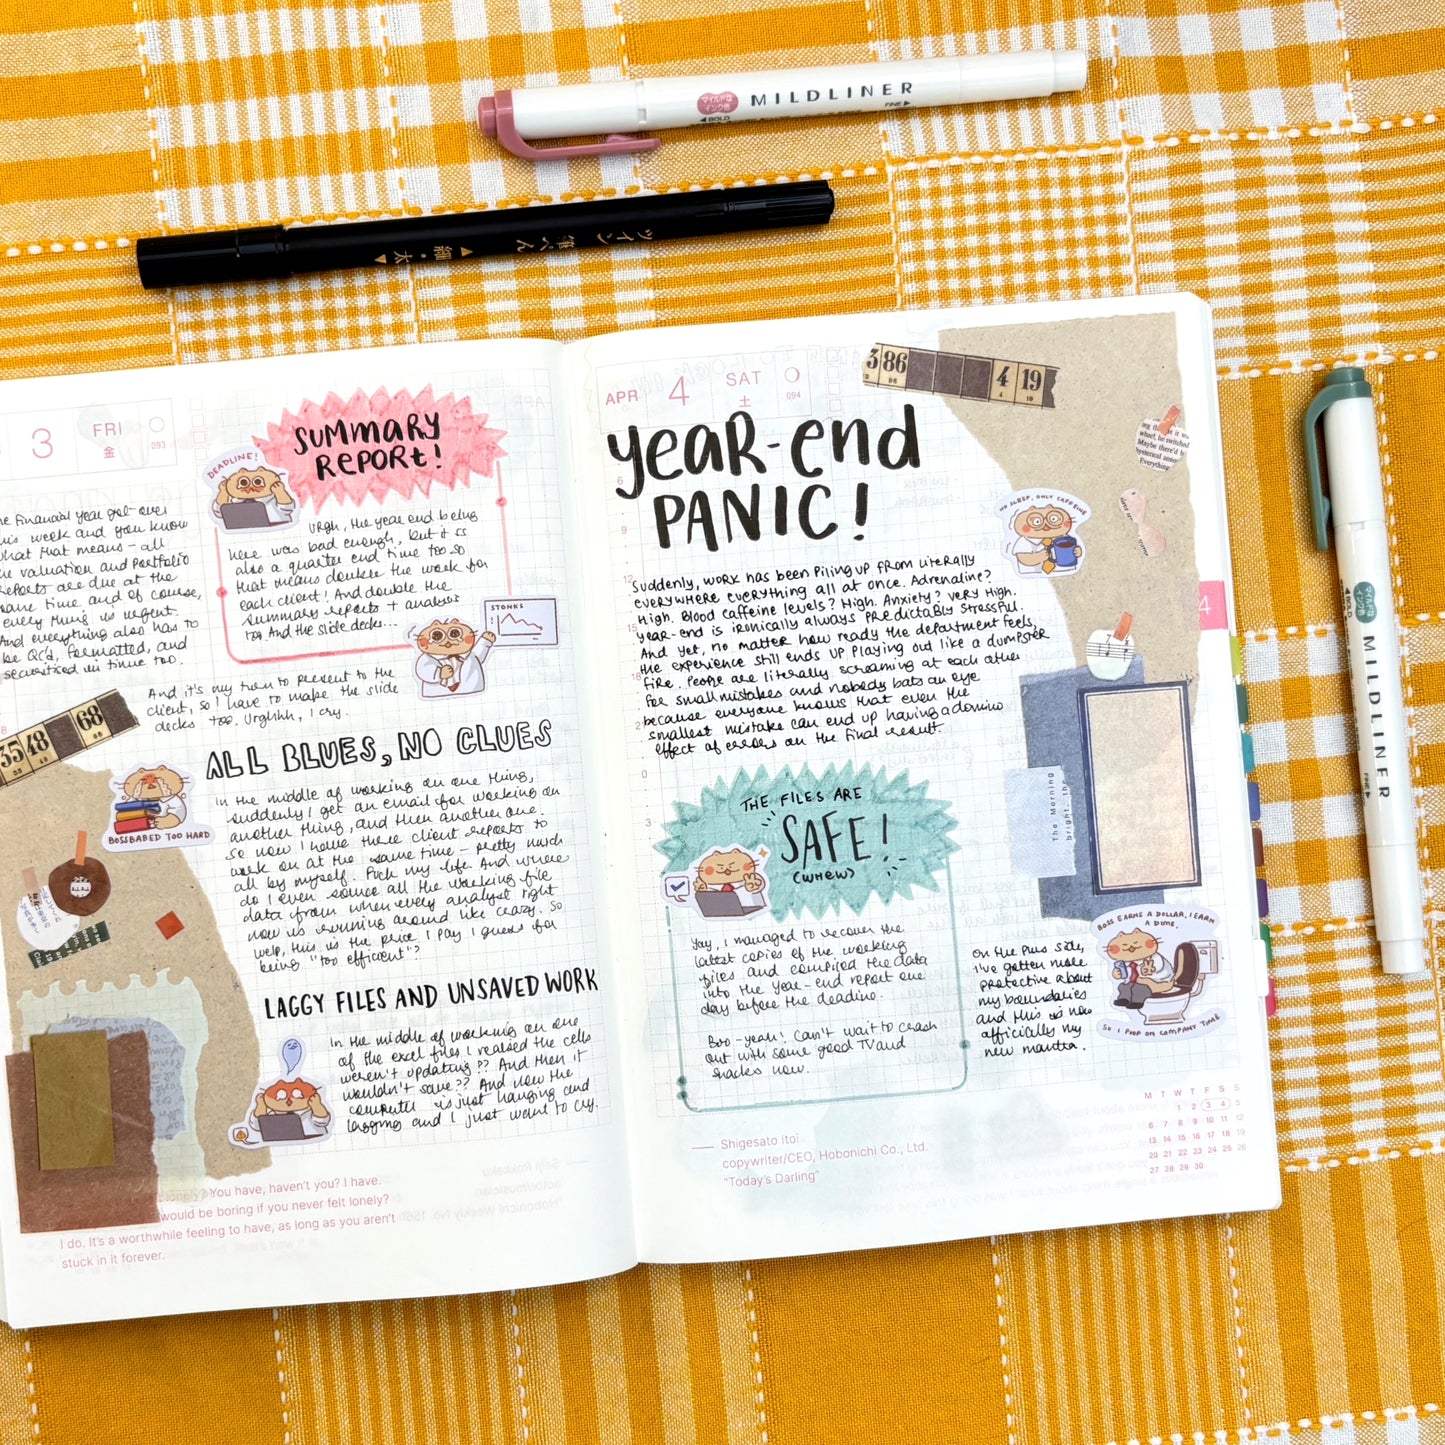 マイルドな
インク色
MILDLINER
◀BOLD
FINE▶
ツイン筆ぺん
▲細・太▼
3
FRI
金
093
DEADLINE!
SUMMARY
REPORT!
The Financial year got over
this week and you know
what that means - all
the valuation and portfolio
reports are due at the
same time and of course,
everything is urgent.
And everything also has to
be QC'd, formatted, and
securitised in time too.
Urgh, the year end being
here was bad enough, but it is
also a quarter end time too so
that means double the work for
each client! And double the
Summary reports + analysis
too And the slide decks...
STONKS
And it's my turn to present to the
client, so I have to make the slide
decks too. Urghhh, I cry.
35 48 68
ALL BLUES, NO CLUES
BOSSBABED TOO HARD
In the middle of working on one thing,
suddenly I get an email for working on
another thing, and then another one.
So now I have three client reports to
work on at the same time - pretty much
all by myself. Fuck my life. And where
do I even source all the working file
data from when every analyst right
now is running around like crazy. So
welp, this is the price I pay I guess for
being "too efficient"?
LAGGY FILES AND UNSAVED WORK
In the middle of working on one
of the excel files I realsed the cells
weren't updating?? And then it
wouldn't save?? And now the
computer is just hanging and
lagging and I just want to cry.
lonely? You have, haven't you? I have.
would be boring if you never felt lonely?
I do. It's a worthwhile feeling to have, as long as you aren't
stuck in it forever.
APR
4
SAT
土
094
3 86 4 19
YEAR-END
PANIC!
NO SLEEP, ONLY CAFFEINE
Suddenly, work has been piling up from literally
everywhere everything all at once. Adrenaline?
High. Blood caffeine levels? High. Anxiety? Very High.
Year-end is ironically always predictably stressful.
And yet, no matter how ready the department feels,
the experience still ends up playing out like a dumpster
fire. People are literally screaming at each other
for small mistakes and nobody bats an eye
because everyone knows that even the
smallest mistake can end up having a domino
effect of errors on the final result.
THE FILES ARE
SAFE!
(WHEW)
Yay, I managed to recover the
latest copies of the working
files and compiled the data
into the year-end report one
day before the deadline.
Boo-yeah! Can't wait to crash
out with some good TV and
snacks now.
wheel, he switched
Maybe there'd b
hysterical anno
Everything
The Morning
bright, th
BOSS EARNS A DOLLAR, I EARN
A DIME,
SO I POOP ON COMPANY TIME
On the plus side,
I've gotten more
protective about
my boundaries
and this is now
officially my
new mantra.
4
Shigesato Itoi
copywriter/CEO, Hobonichi Co., Ltd.
"Today's Darling"
M T W T F S S
1 2 3 4 5
6 7 8 9 10 11 12
13 14 15 16 17 18 19
20 21 22 23 24 25 26
27 28 29 30
◀BOLD
マイルドな
インク色
MILDLINER
FINE▶